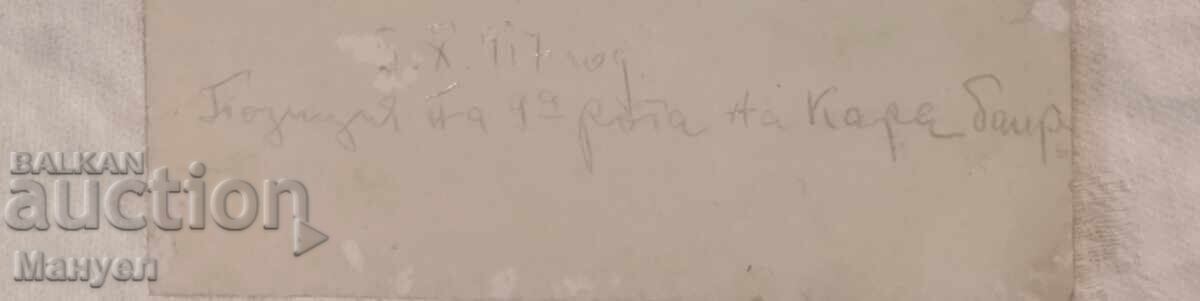 5. X. 917 год.
Позиция на 4а рота на Кара баир
BALKAN
auction
Мануел